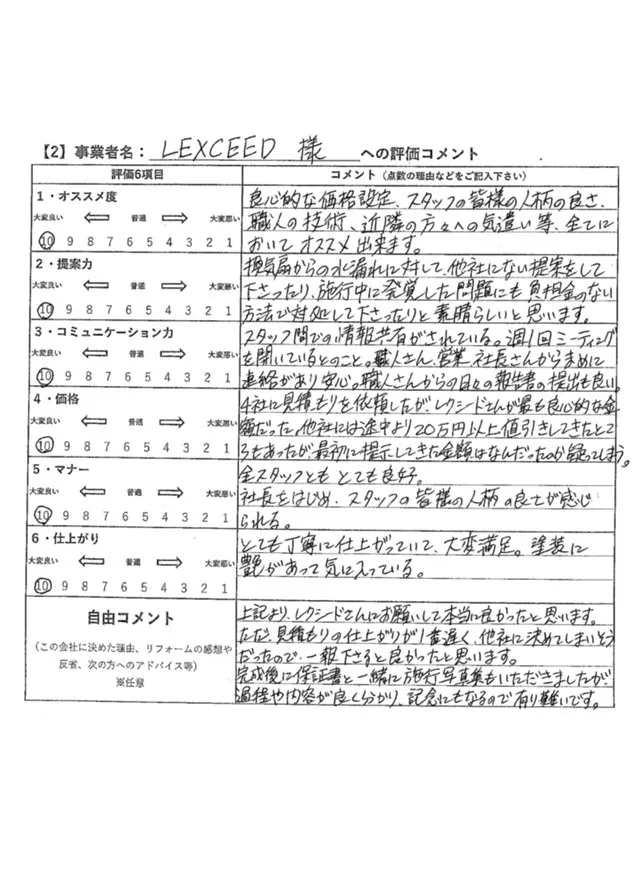 【2】事業者名： LEXCEED 様 への評価コメント
評価6項目
コメント（点数の理由などをご記入下さい）
1・オススメ度
大変良い ⇐ 普通 ⇒ 大変悪い
10 9 8 7 6 5 4 3 2 1
良心的な価格設定、スタッフの皆様の人柄の良さ、
職人の技術、近隣の方々への気遣い等、全てに
おいてオススメ出来ます。
2・提案力
大変良い ⇐ 普通 ⇒ 大変悪い
10 9 8 7 6 5 4 3 2 1
換気扇からの水漏れに対して、他社にない提案をして
下さったり、施行中に発覚した問題にも負担金のない
方法で対処して下さったりと素晴らしいと思います。
3・コミュニケーション力
大変良い ⇐ 普通 ⇒ 大変悪い
10 9 8 7 6 5 4 3 2 1
スタッフ間での情報共有がされている。週1回ミーティング
を開いているとのこと。職人さん、営業、社長さんからまめに
連絡があり安心。職人さんからの日々の報告書の提出も良い。
4・価格
大変良い ⇐ 普通 ⇒ 大変悪い
10 9 8 7 6 5 4 3 2 1
4社に見積もりを依頼したが、レクシードさんが最も良心的な金
額だった。他社には途中より20万円以上値引きしてきたとこ
ろもあったが最初に提示してきた金額はなんだったのか疑ってしまう。
5・マナー
大変良い ⇐ 普通 ⇒ 大変悪い
10 9 8 7 6 5 4 3 2 1
全スタッフともとても良好。
社長をはじめ、スタッフの皆様の人柄の良さが感じ
られる。
6・仕上がり
大変良い ⇐ 普通 ⇒ 大変悪い
10 9 8 7 6 5 4 3 2 1
とても丁寧に仕上がっていて、大変満足。塗装に
艶があって気に入っている。
自由コメント
（この会社に決めた理由、リフォームの感想や
反省、次の方へのアドバイス等）
※任意
上記より、レクシードさんにお願いして本当に良かったと思います。
ただ、見積もりの仕上がりが1番遅く、他社に決めてしまいそう
だったので、一報下さると良かったと思います。
完成後に保証書と一緒に施行写真集もいただきましたが、
過程や内容が良く分かり、記念にもなるので有り難いです。